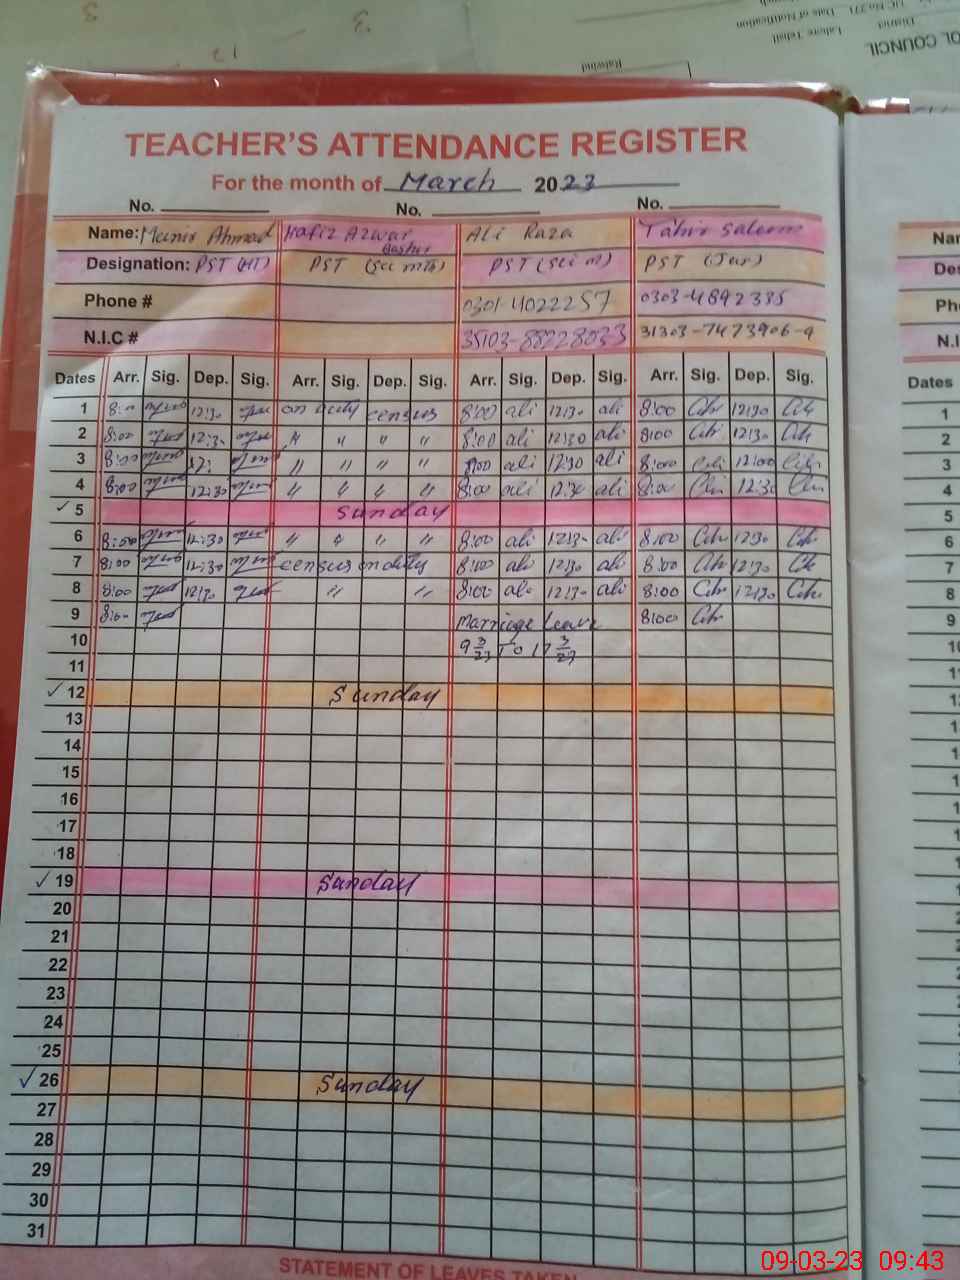 TEACHER'S ATTENDANCE REGISTER
For the month of March 2023
No. No. No.
Name: Munir Ahmad Hafiz Azwar Bashir Ali Raza Tahir Saleem
Designation: PST (HT) PST (Sci mth) PST (Sci m) PST (Jur)
Phone # 0301-4022257 0303-4892335
N.I.C # 35103-88228033 31303-7473906-9
Dates Arr. Sig. Dep. Sig. Arr. Sig. Dep. Sig. Arr. Sig. Dep. Sig. Arr. Sig. Dep. Sig.
1 8:00 12:30 on duty census 8:00 ali 12:30 ali 8:00 12:30
2 8:00 12:30 〃 〃 〃 〃 8:00 ali 12:30 ali 8:00 12:30
3 8:00 12: 〃 〃 〃 〃 8:00 ali 12:30 ali 8:00 12:00
4 8:00 12:30 〃 〃 〃 〃 8:00 ali 12:30 ali 8:00 12:30
✓ 5 Sunday
6 8:00 12:30 〃 〃 〃 〃 8:00 ali 12:30 ali 8:00 12:30
7 8:00 12:30 census on duty 8:00 ali 12:30 ali 8:00 12:30
8 8:00 12:30 〃 〃 8:00 ali 12:30 ali 8:00 12:30
9 8:00 Marriage leave 8:00
10 9 3/23 To 17 3/23
11
✓ 12 Sunday
13
14
15
16
17
18
✓ 19 Sunday
20
21
22
23
24
25
✓ 26 Sunday
27
28
29
30
31
STATEMENT OF LEAVES TAKEN
Dates
1
2
3
4
5
6
7
8
9
OL COUNCIL
District
Lahore Tehsil
Date of Notification
UC No.271
Raiwind
09-03-23 09:43